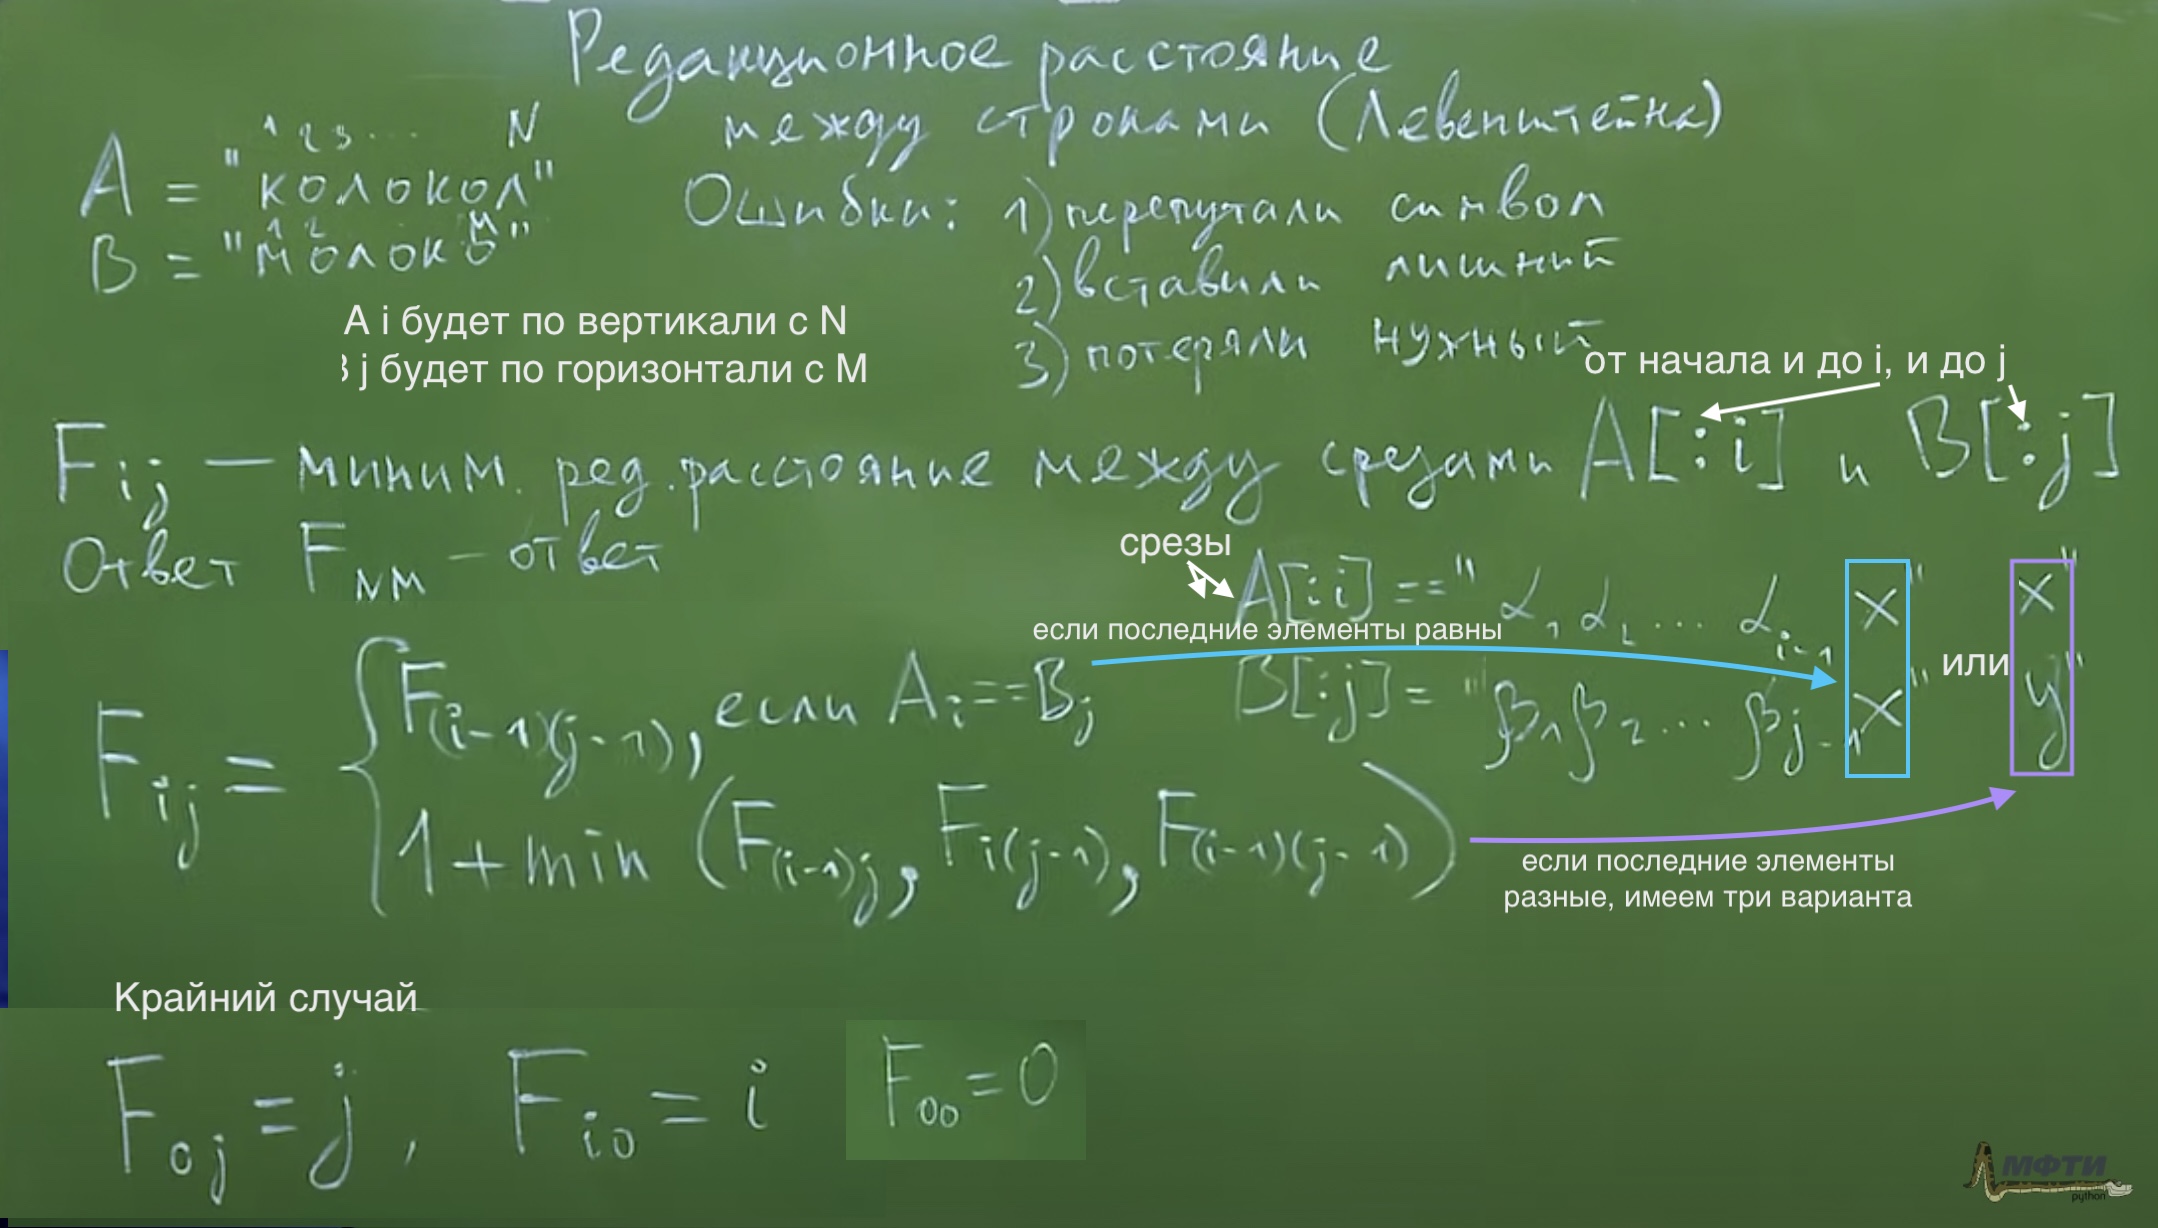 Редакционное расстояние
между строками (Левенштейна)
1 2 3 ... N
A = "колокол"
1 2 M
B = "молоко"
Ошибки: 1) перепутали символ
2) вставили лишний
3) потеряли нужный
А i будет по вертикали с N
j будет по горизонтали с M
от начала и до i, и до j
Fij — миним. ред. расстояние между срезами A[:i] и B[:j]
Ответ FNM — ответ
срезы
A[:i] == "α1 α2 ... αi-1 x" x"
если последние элементы равны
или
B[:j] = "β1 β2 ... βj-1 x" y"
Fij = { F(i-1)(j-1), если Ai == Bj
1 + min (F(i-1)j, Fi(j-1), F(i-1)(j-1))
если последние элементы
разные, имеем три варианта
Крайний случай
F0j = j, Fi0 = i F00 = 0
МФТИ
python